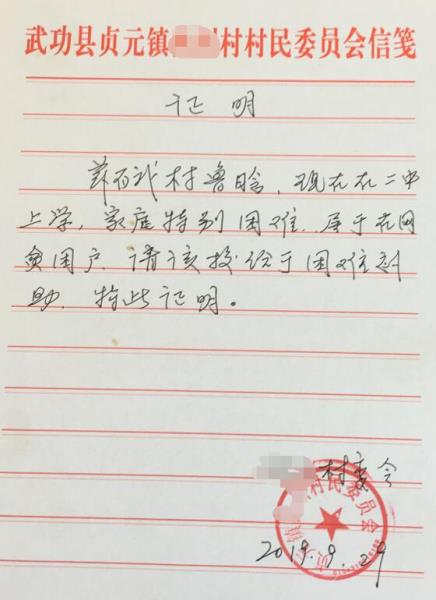 武功县贞元镇村村民委员会信笺
证明
兹有我村鲁晗，现在在二中
上学，家庭特别困难，属于在网
贫困户，请该校给于困难补
助，特此证明。
村委会
贞元镇 村民委员会
2019.9.29